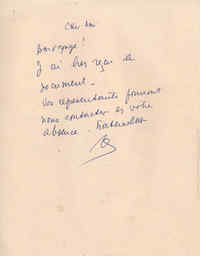 Cher ami
Bon voyage !
J'ai bien reçu le
document.
Vos représentants pourront
nous contacter en votre
absence.